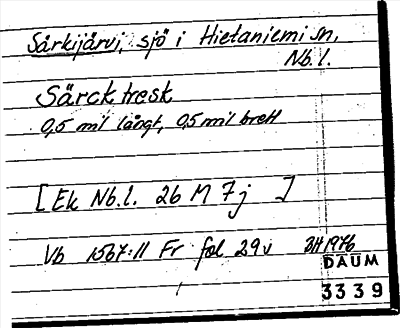 Särkijärvi, sjö i Hietaniemi sn,
Nb.l.
Särck tresk
0,5 mil långt, 0,5 mil brett
[Ek Nb.l. 26 M 7j ]
Vb 1567:11 Fr fol 29v 1976
DAUM
3339